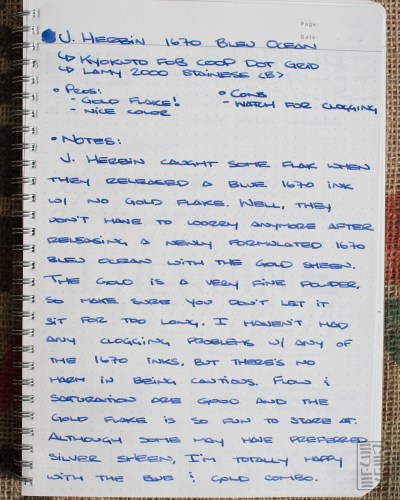 Page:
Date:
J. Herbin 1670 Bleu Ocean
↳ Kyokuto FOB COOP Dot Grid
↳ Lamy 2000 Stainless <B>
• Pros:
- Gold Flake!
- Nice Color
• Cons
- Watch for Clogging
• Notes:
J. Herbin caught some flak when
they released a blue 1670 ink
w/ no gold flake. Well, they
don't have to worry anymore after
releasing a newly formulated 1670
Bleu Ocean with the gold sheen.
The gold is a very fine powder,
so make sure you don't let it
sit for too long. I haven't had
any clogging problems w/ any of
the 1670 inks, but there's no
harm in being cautious. Flow &
saturation are good and the
gold flake is so fun to stare at.
Although some may have preferred
silver sheen, I'm totally happy
with the blue & gold combo.